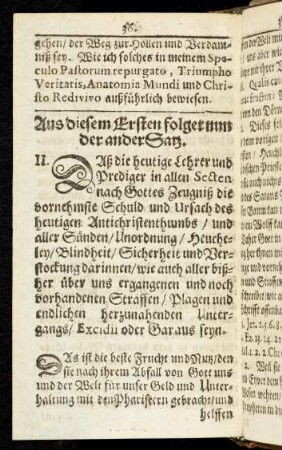 36.
gehen/ der Weg zur Hollen und Verdam-
niß sey. Wie ich solches in meinem Spe-
culo Pastorum repurgato, Triumpho
Veritatis, Anatomia Mundi und Chri-
sto Redivivo außführlich bewiesen.
Aus diesem Ersten folget nun
der ander Satz.
II. DAß die heutige Lehrer und
Prediger in allen Secten
nach Gottes Zeugniß die
vornehmste Schuld und Ursach des
heutigen Antichristenthumbs / und
aller Sünden/ Unordnung / Heuche-
ley/ Blindheit / Sicherheit und Ver-
stockung darinnen/ wie auch aller biß-
her über uns ergangenen und noch
vorhandenen Straffen / Plagen und
endlichen herzunahenden Unter-
gangs/ Excidii oder Garaus seyn.
DAs ist die beste Frucht und Nutz/ den
sie nach ihrem Abfall von Gott uns
und der Welt für unser Geld und Unter-
haltung mit den Phariseern gebracht/ und
helffen